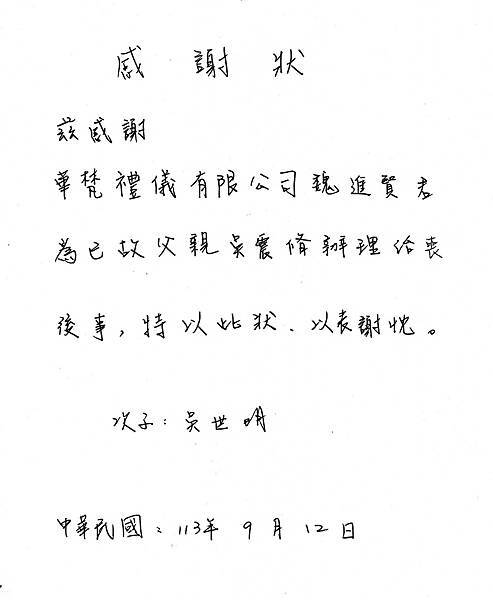 感謝狀
茲感謝
華梵禮儀有限公司魏進賢君
為已故父親吳震脩辦理治喪
後事,特以此狀、以表謝忱。
次子:吳世明
中華民國:113年9月12日